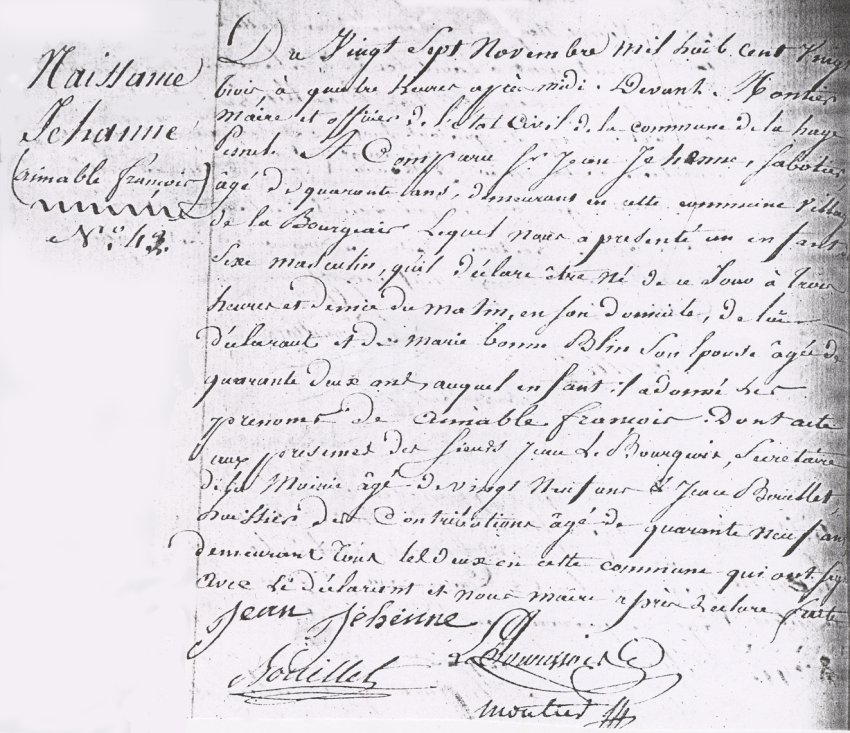 Naissance
Jehanne
(aimable françois)
N.o 43.
Du Vingt Sept Novembre mil huit cent Vingt
trois à quatre heures après midi. Devant Montier
maire et officier de l'état Civil de la commune de la haye
Pesnel. A Comparu Sr. Jean Jehenne, Sabotier,
âgé de quarante ans, demeurant en cette commune Village
de la Bourgeais Lequel nous a présenté un enfant
Sexe masculin, qu'il déclare être né de ce Jour à trois
heures et demie du matin, en son domicile, de lui
déclarant et de marie bonne Blin Son épouse âgée de
quarante deux ans, auquel enfant il a donné les
prénoms de aimable françois. Dont acte
aux présences des Sieurs Jean Le Bourgeois, Secrétaire
de la Mairie âgé de vingt Neuf ans & Jean Bouillet,
huissier des Contributions âgé de quarante neuf ans
demeurant tous les deux en cette commune qui ont signé
avec Le déclarant et nous maire après Lecture faite
Jean Jehenne
Bouillet
montier